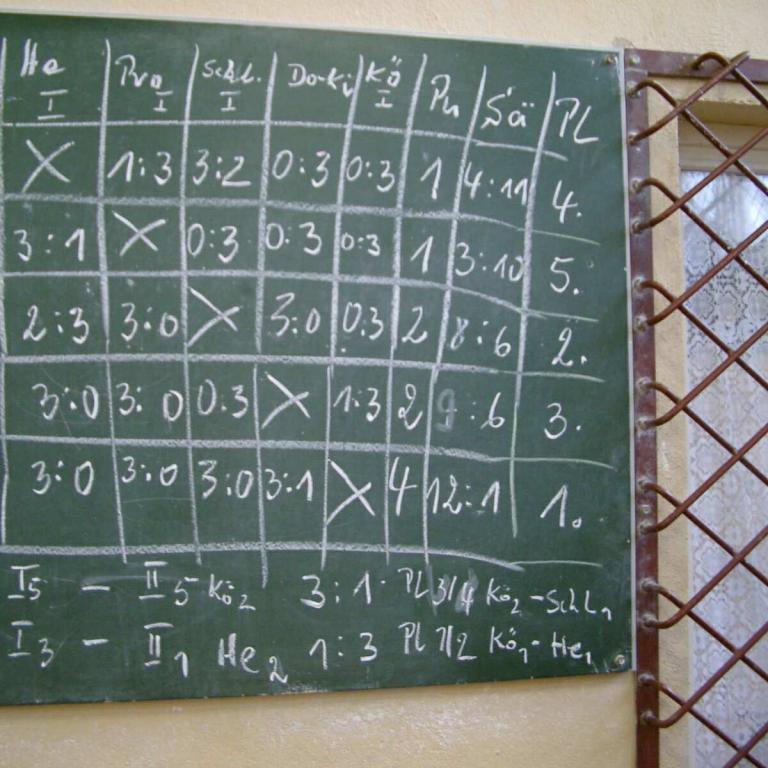 He I Pro I Schl. I Do-Ki Kö I Pu Sä PL
X 1:3 3:2 0:3 0:3 1 4:11 4.
3:1 X 0:3 0:3 0:3 1 3:10 5.
2:3 3:0 X 3:0 0:3 2 8:6 2.
3:0 3:0 0:3 X 1:3 2 9:6 3.
3:0 3:0 3:0 3:1 X 4 12:1 1.
I5 - II5 Kö2 3:1 PL 3/4 Kö2-Schl1
I3 - II1 He2 1:3 Pl 1/2 Kö1-He1